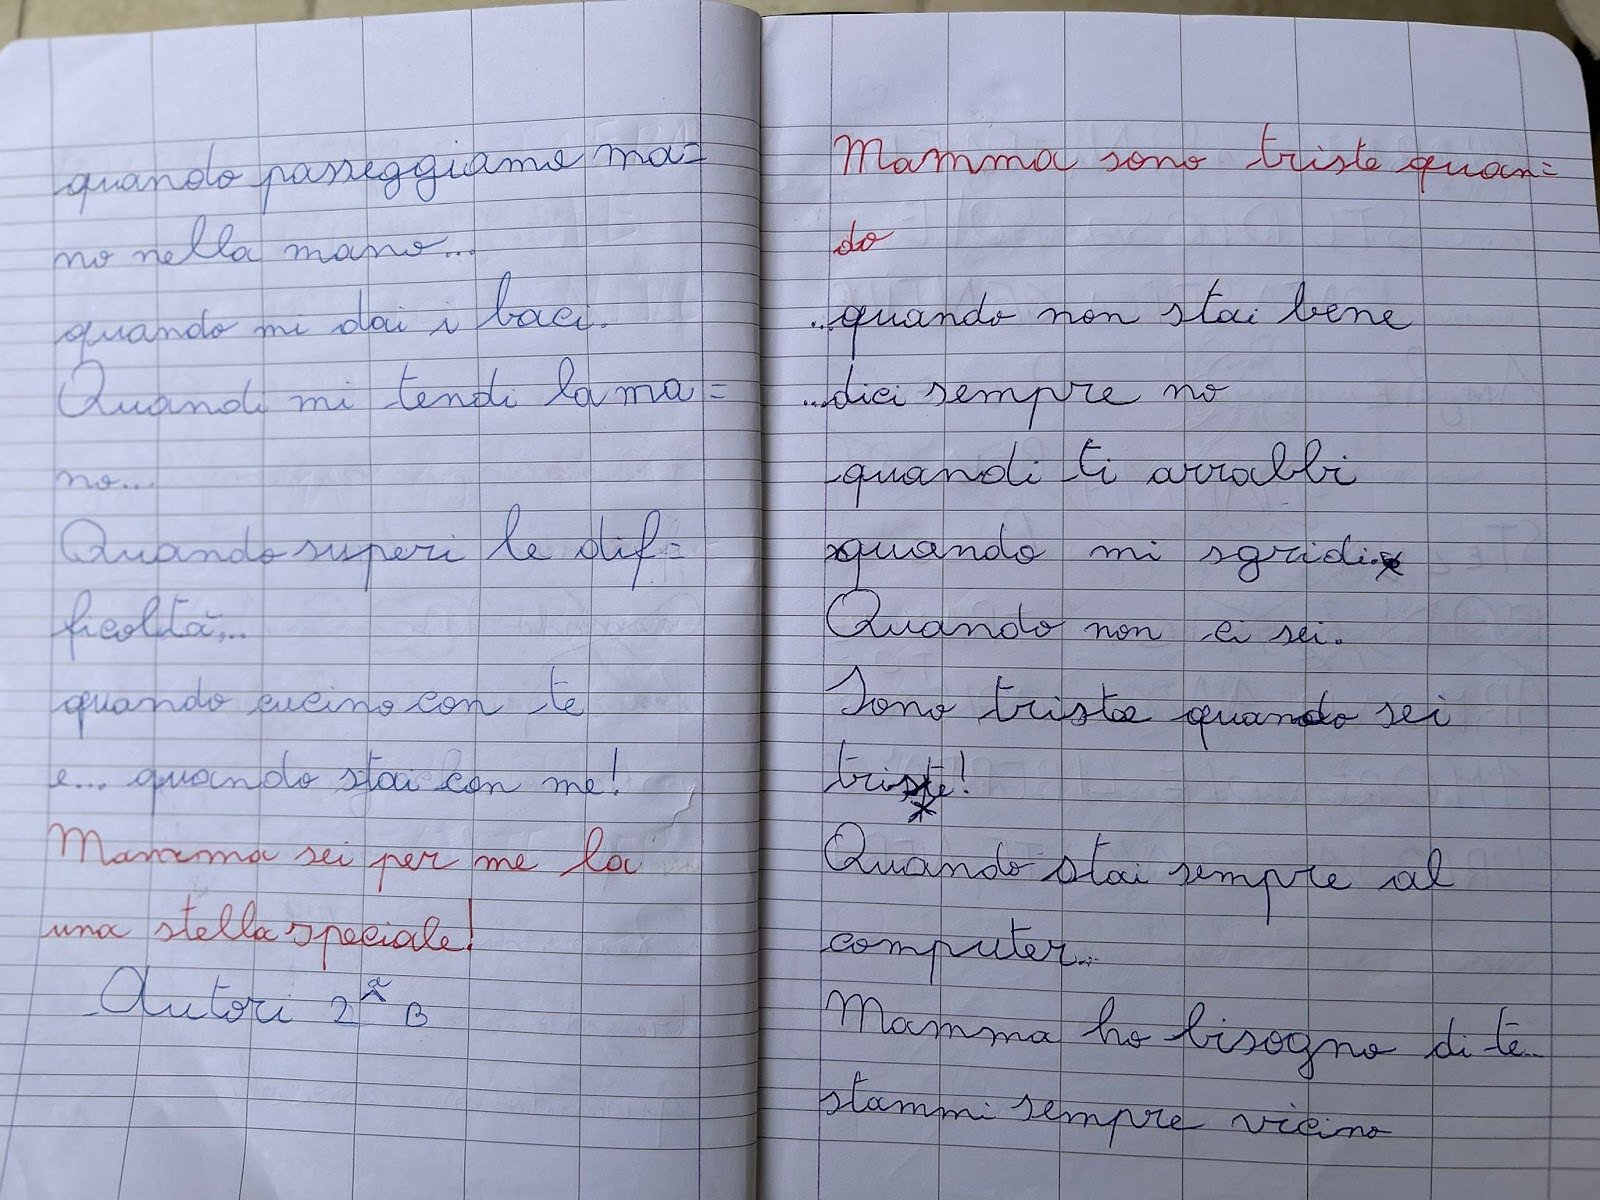 quando passeggiamo ma=
no nella mano...
quando mi dai i baci.
Quandi mi tendi la ma=
no...
Quando superi le dif=
ficoltà...
quando cucino con te
e... quando stai con me!
Mamma sei per me la
una stella speciale!
Autori 2ª B
Mamma sono triste quan=
do
...quando non stai bene
...dici sempre no
quandi ti arrabbi
quando mi sgridi.
Quando non ci sei.
Sono triste quando sei
triste!
Quando stai sempre al
computer...
Mamma ho bisogno di te...
stammi sempre vicino